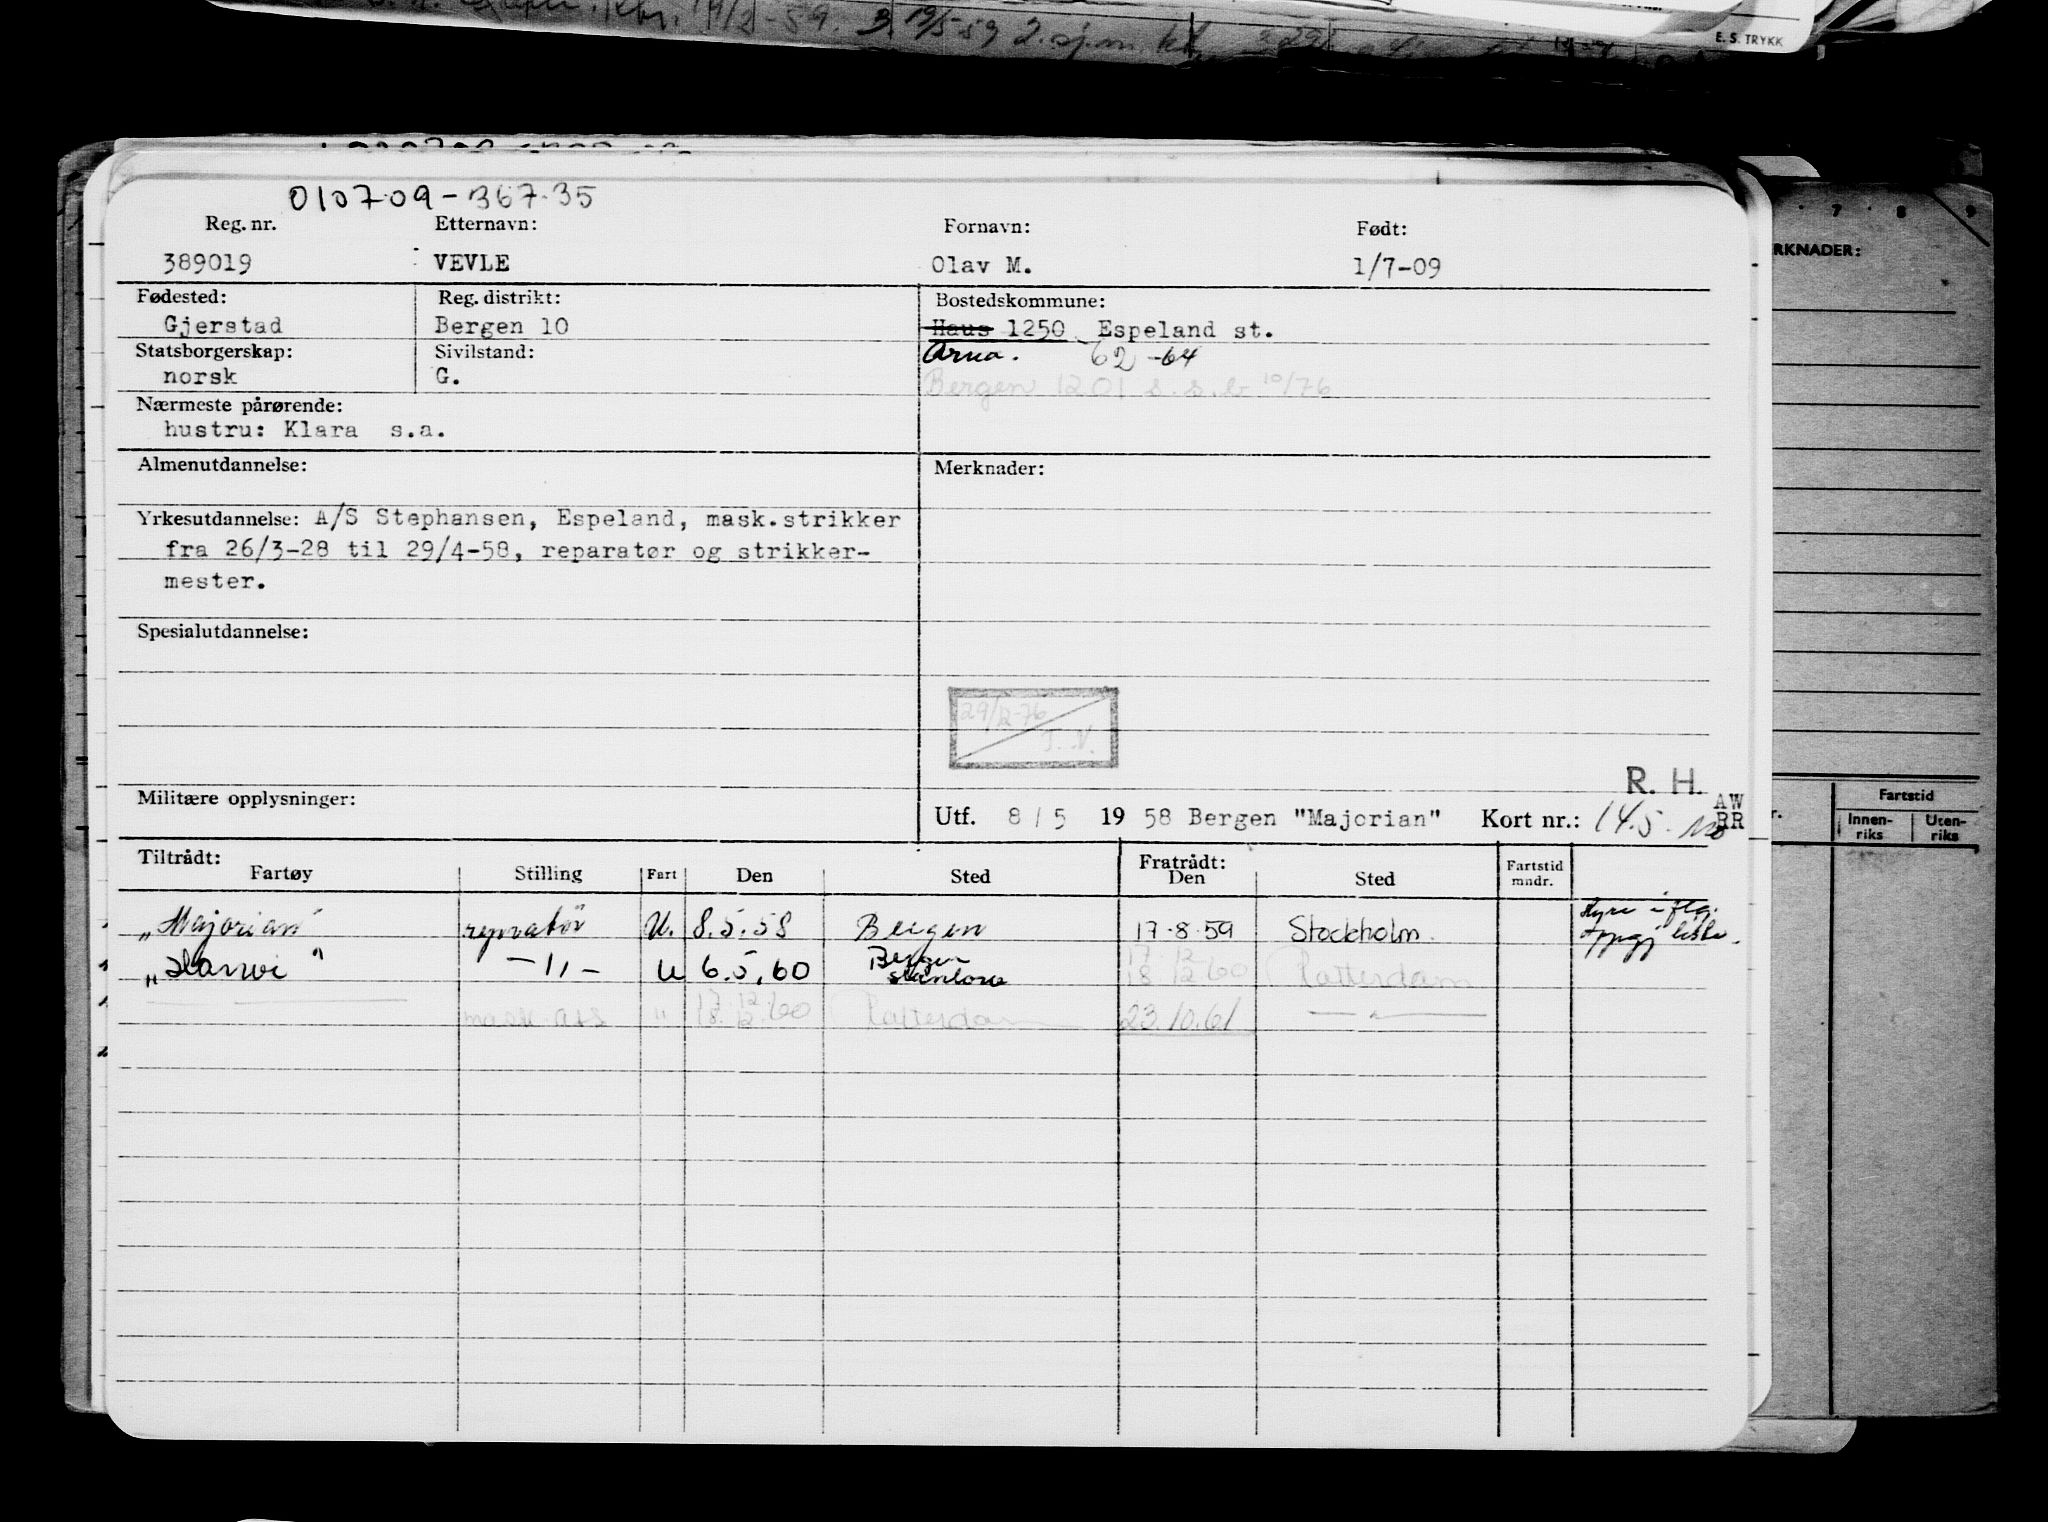 E. S. TRYKK
RKNADER:
7 8 9
010709-367.35
Reg. nr. Etternavn: Fornavn: Født:
389019 VEVLE Olav M. 1/7-09
Fødested: Reg. distrikt: Bostedskommune:
Gjerstad Bergen 10 Haus 1250 Espeland st.
Statsborgerskap: Sivilstand: Arna. 62-64
norsk G. Bergen 1201 s.s.b 10/76
Nærmeste pårørende:
hustru: Klara s.a.
Almenutdannelse: Merknader:
Yrkesutdannelse: A/S Stephansen, Espeland, mask.strikker
fra 26/3-28 til 29/4-58, reparatør og strikker-
mester.
Spesialutdannelse:
29/12-76
T.N.
R. H.
AW
Militære opplysninger:
Utf. 8/5 1958 Bergen "Majorian" Kort nr.: 14.5. RR
Tiltrådt: Fratrådt:
Fartøy Stilling Fart Den Sted Den Sted Fartstid mndr.
"Majorian" reparatør U. 8.5.58 Bergen 17.8.59 Stockholm. Hyre i flg. oppgj liste.
— 11 — U 6.5.60 Bergen 17.12 18.12.60 Rotterdam
mask. ass " 17.12 18.12.60 Rotterdam 23.10.61 — " —
Fartstid
Innen-riks Uten-riks